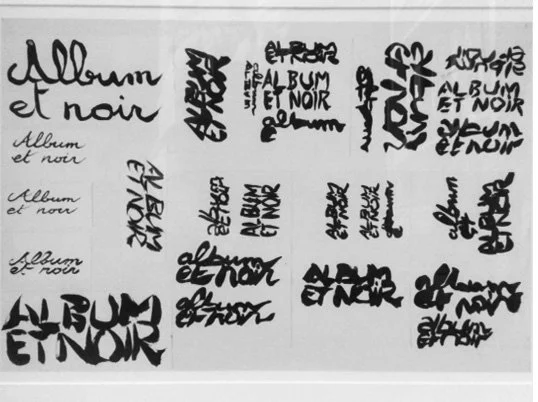 Album
et noir
Album
et noir
Album
et noir
Album
et noir
ALBUM
ET NOIR
ALBUM
ET NOIR
ALBUM
ET NOIR
ET NOIR
ALBUM
ET NOIR
album
ALBUM
ET NOIR
album
et noir
album
et noir
ALBUM
ET NOIR
ALBUM
ET NOIR
ALBUM
ET NOIR
album
et
ALBUM
ET NOIR
album
et noir
album
et noir